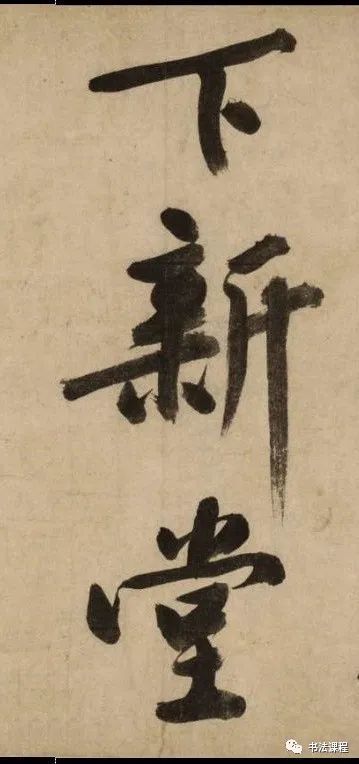 下新堂
书法课程